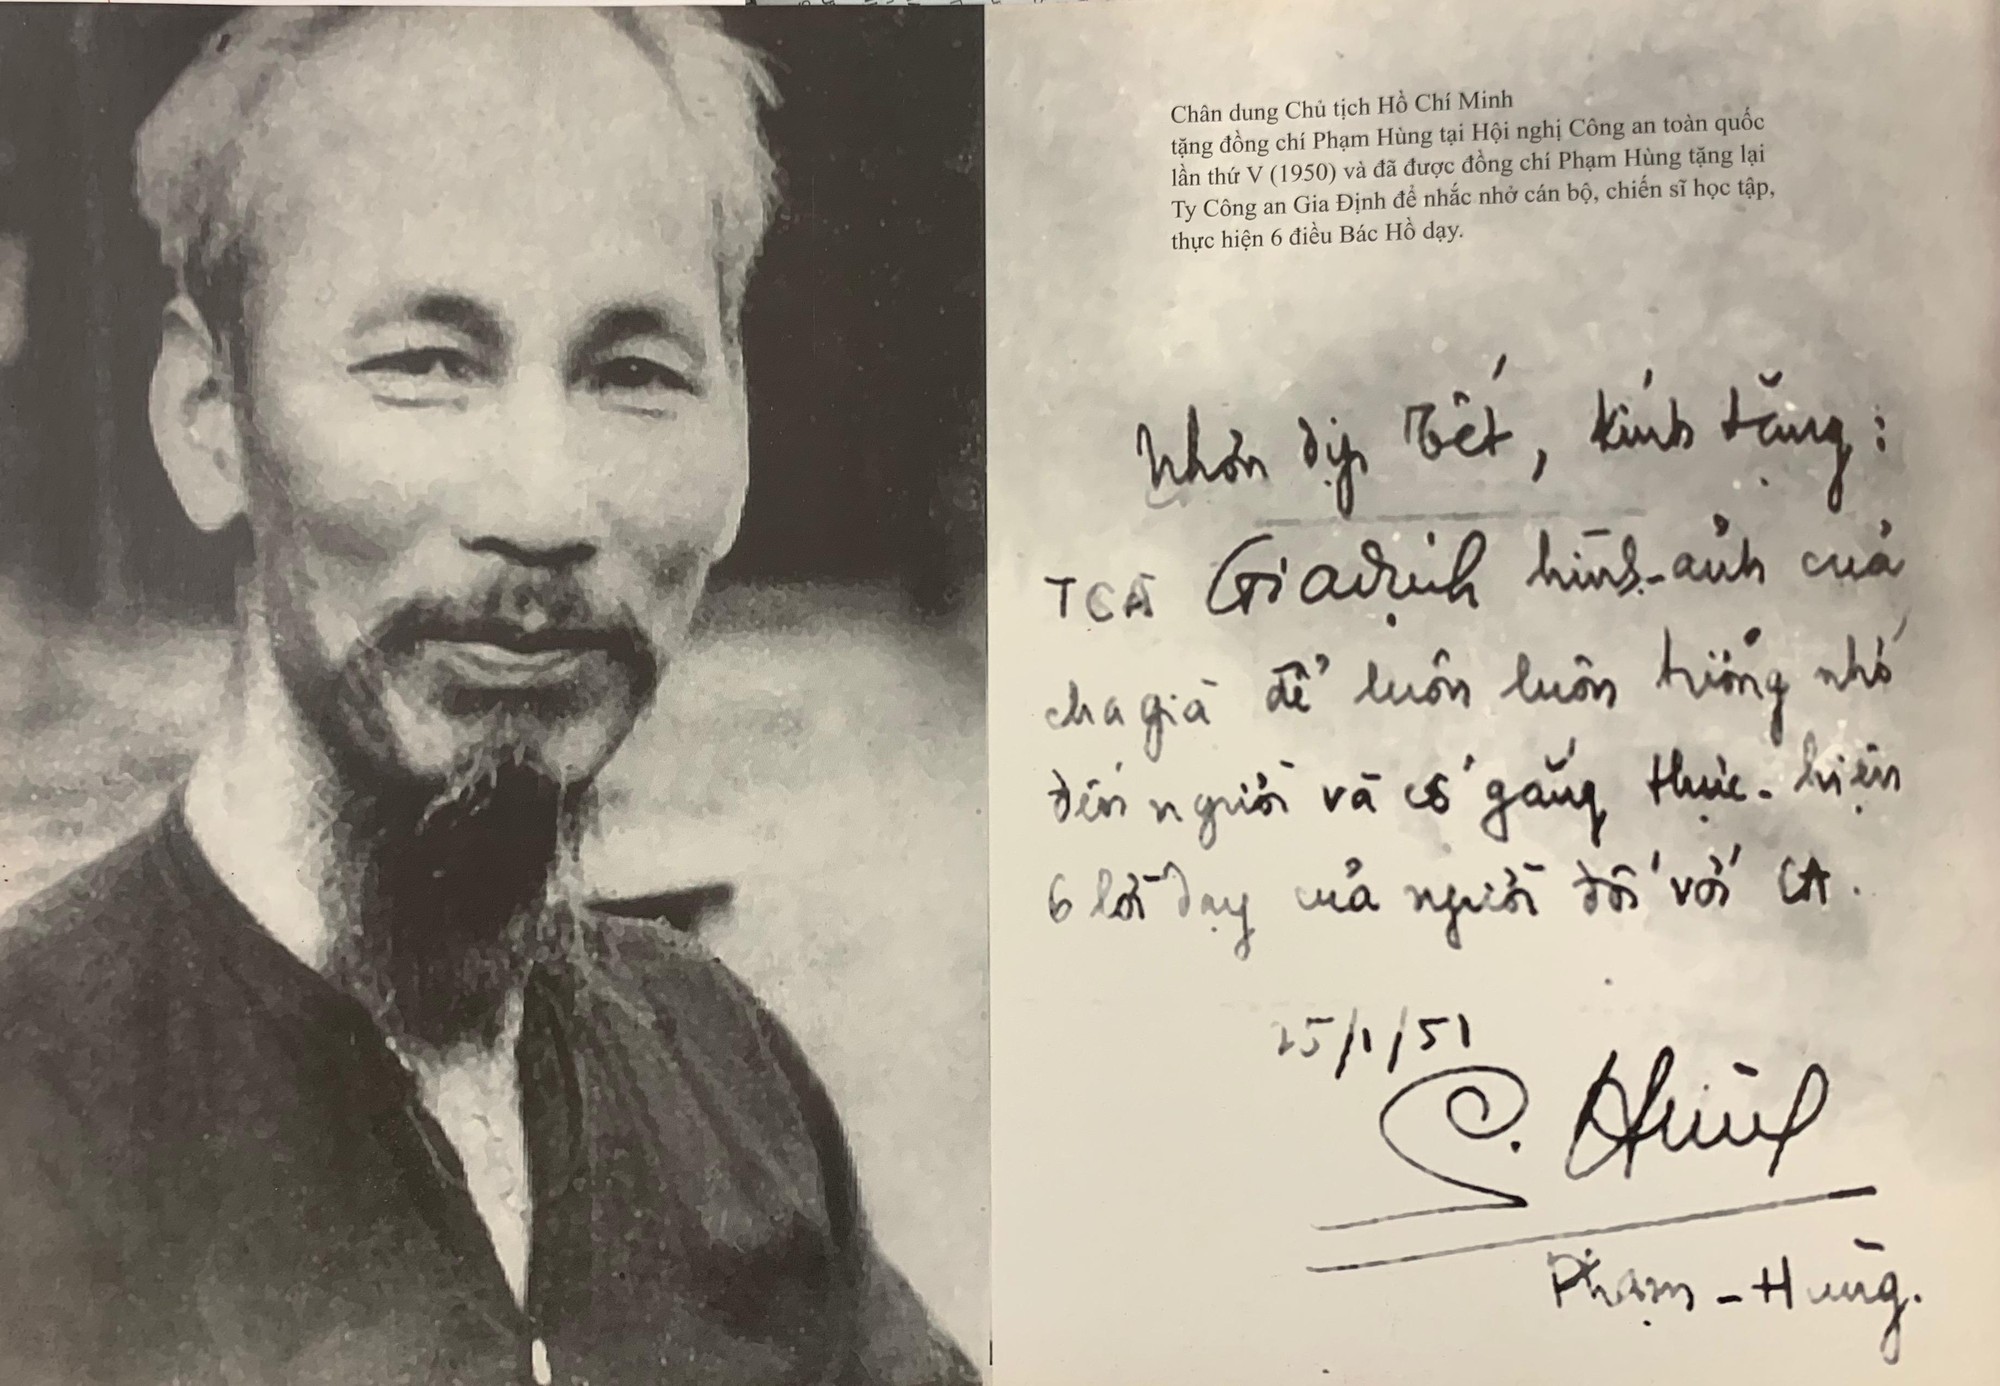 Chân dung Chủ tịch Hồ Chí Minh
tặng đồng chí Phạm Hùng tại Hội nghị Công an toàn quốc
lần thứ V (1950) và đã được đồng chí Phạm Hùng tặng lại
Ty Công an Gia Định để nhắc nhở cán bộ, chiến sĩ học tập,
thực hiện 6 điều Bác Hồ dạy.
Nhơn dịp Tết, kính tặng:
TCA Gia định hình-ảnh của
cha già để luôn luôn tưởng nhớ
đến người và cố gắng thực-hiện
6 lời dạy của người đối với CA.
25/1/51
Hùng
Phạm-Hùng.